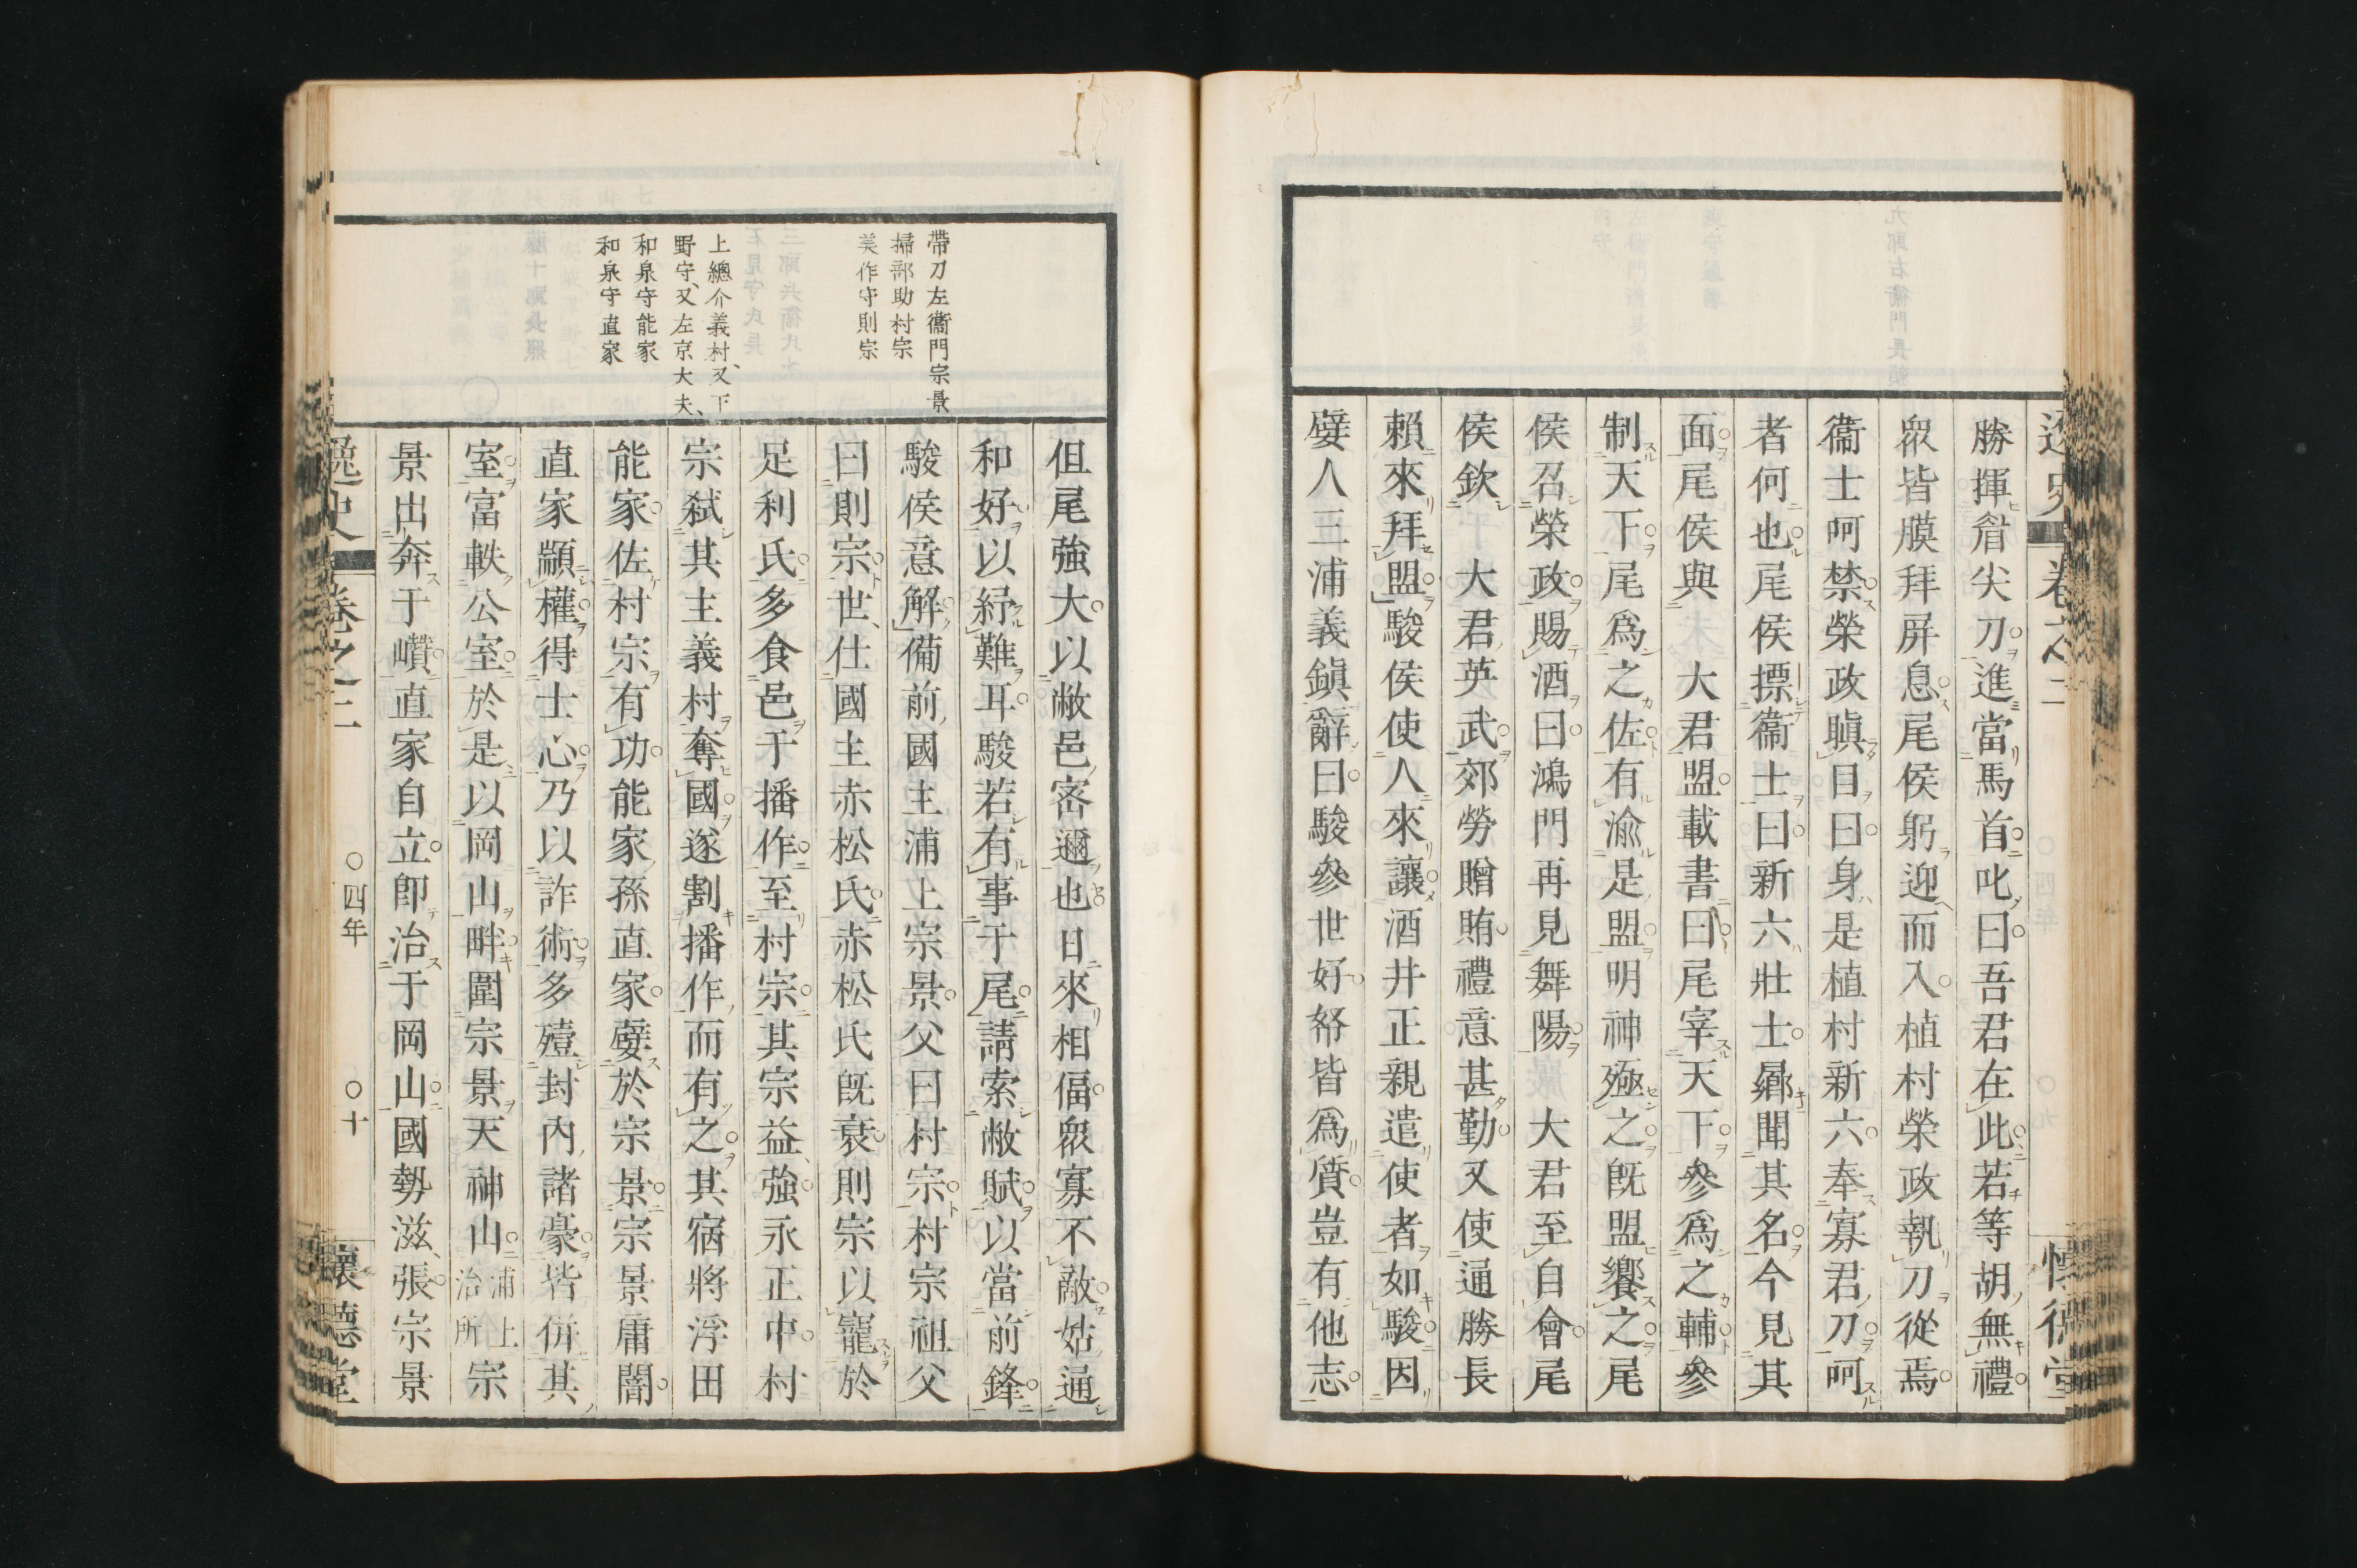 勝揮眉尖刀進當馬首叱曰吾君在此若等胡無禮
衆皆膜拜屏息尾侯躬迎而入植村榮政執刀從焉
衞士呵禁榮政瞋目曰身是植村新六奉寡君刀呵
者何也尾侯摽衞士曰新六壯士郷聞其名今見其
面尾侯與　大君盟載書曰尾宰天下參爲之輔參
制天下尾爲之佐有渝是盟明神殛之既盟饗之尾
侯召榮政賜酒曰鴻門再見舞陽　大君至自會尾
侯欽　大君英武郊勞贈賄禮意甚勤又使通勝長
賴來拜盟駿侯使人來讓酒井正親遣使者如駿因
嬖人三浦義鎭辭曰駿參世好帑皆爲質豈有他志
帶刀左衞門宗景
掃部助村宗
美作守則宗
上總介義村、又下
野守、又左京大夫、
和泉守能家
和泉守直家
但尾強大以敝邑密邇也日來相偪衆寡不敵姑通
和好以紓難耳駿若有事于尾請索敝賦以當前鋒
駿侯意解備前國主浦上宗景父曰村宗村宗祖父
曰則宗世仕國主赤松氏赤松氏既衰則宗以寵於
足利氏多食邑于播作至村宗其宗益強永正中村
宗弑其主義村奪國遂割播作而有之其宿將浮田
能家佐村宗有功能家孫直家嬖於宗景宗景庸闇
直家顓權得士心乃以詐術多殪封內諸豪皆併其
室富軼公室於是以岡山畔圍宗景天神山浦上治所宗
景出奔于巑直家自立即治于岡山國勢滋張宗景
逸史　卷之二　○四年　○十　懷德堂